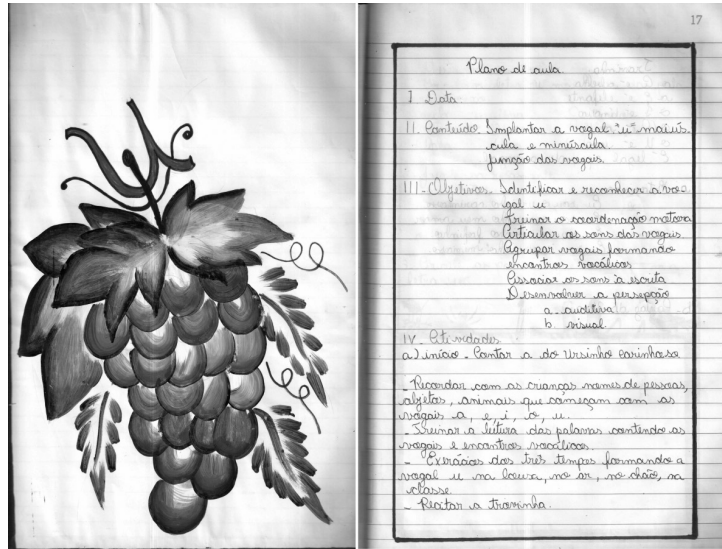 17
Plano de aula.
I Data
II. Conteúdo. Implantar a vogal "u" maiús
cula e minúscula
junção das vogais.
III - Objetivos. Identificar e reconhecer a vo=
gal u
Treinar a coordenação motora
Articular os sons das vogais
Agrupar vogais formando
encontros vocálicos
Associar os sons à escrita
Desenvolver a persepção
a. auditiva
b visual.
IV. Atividades
a) início - Contar a do Ursinho carinhoso
- Recordar com as crianças nomes de pessoas,
objetos, animais que começam com as
vogais a, e, i, o, u.
- Treinar a leitura das palavras contendo as
vogais e encontros vocálicos.
- Exercícios dos três tempos formando a
vogal u na lousa, no ar, no chão, na
classe.
- Recitar a trovinha.